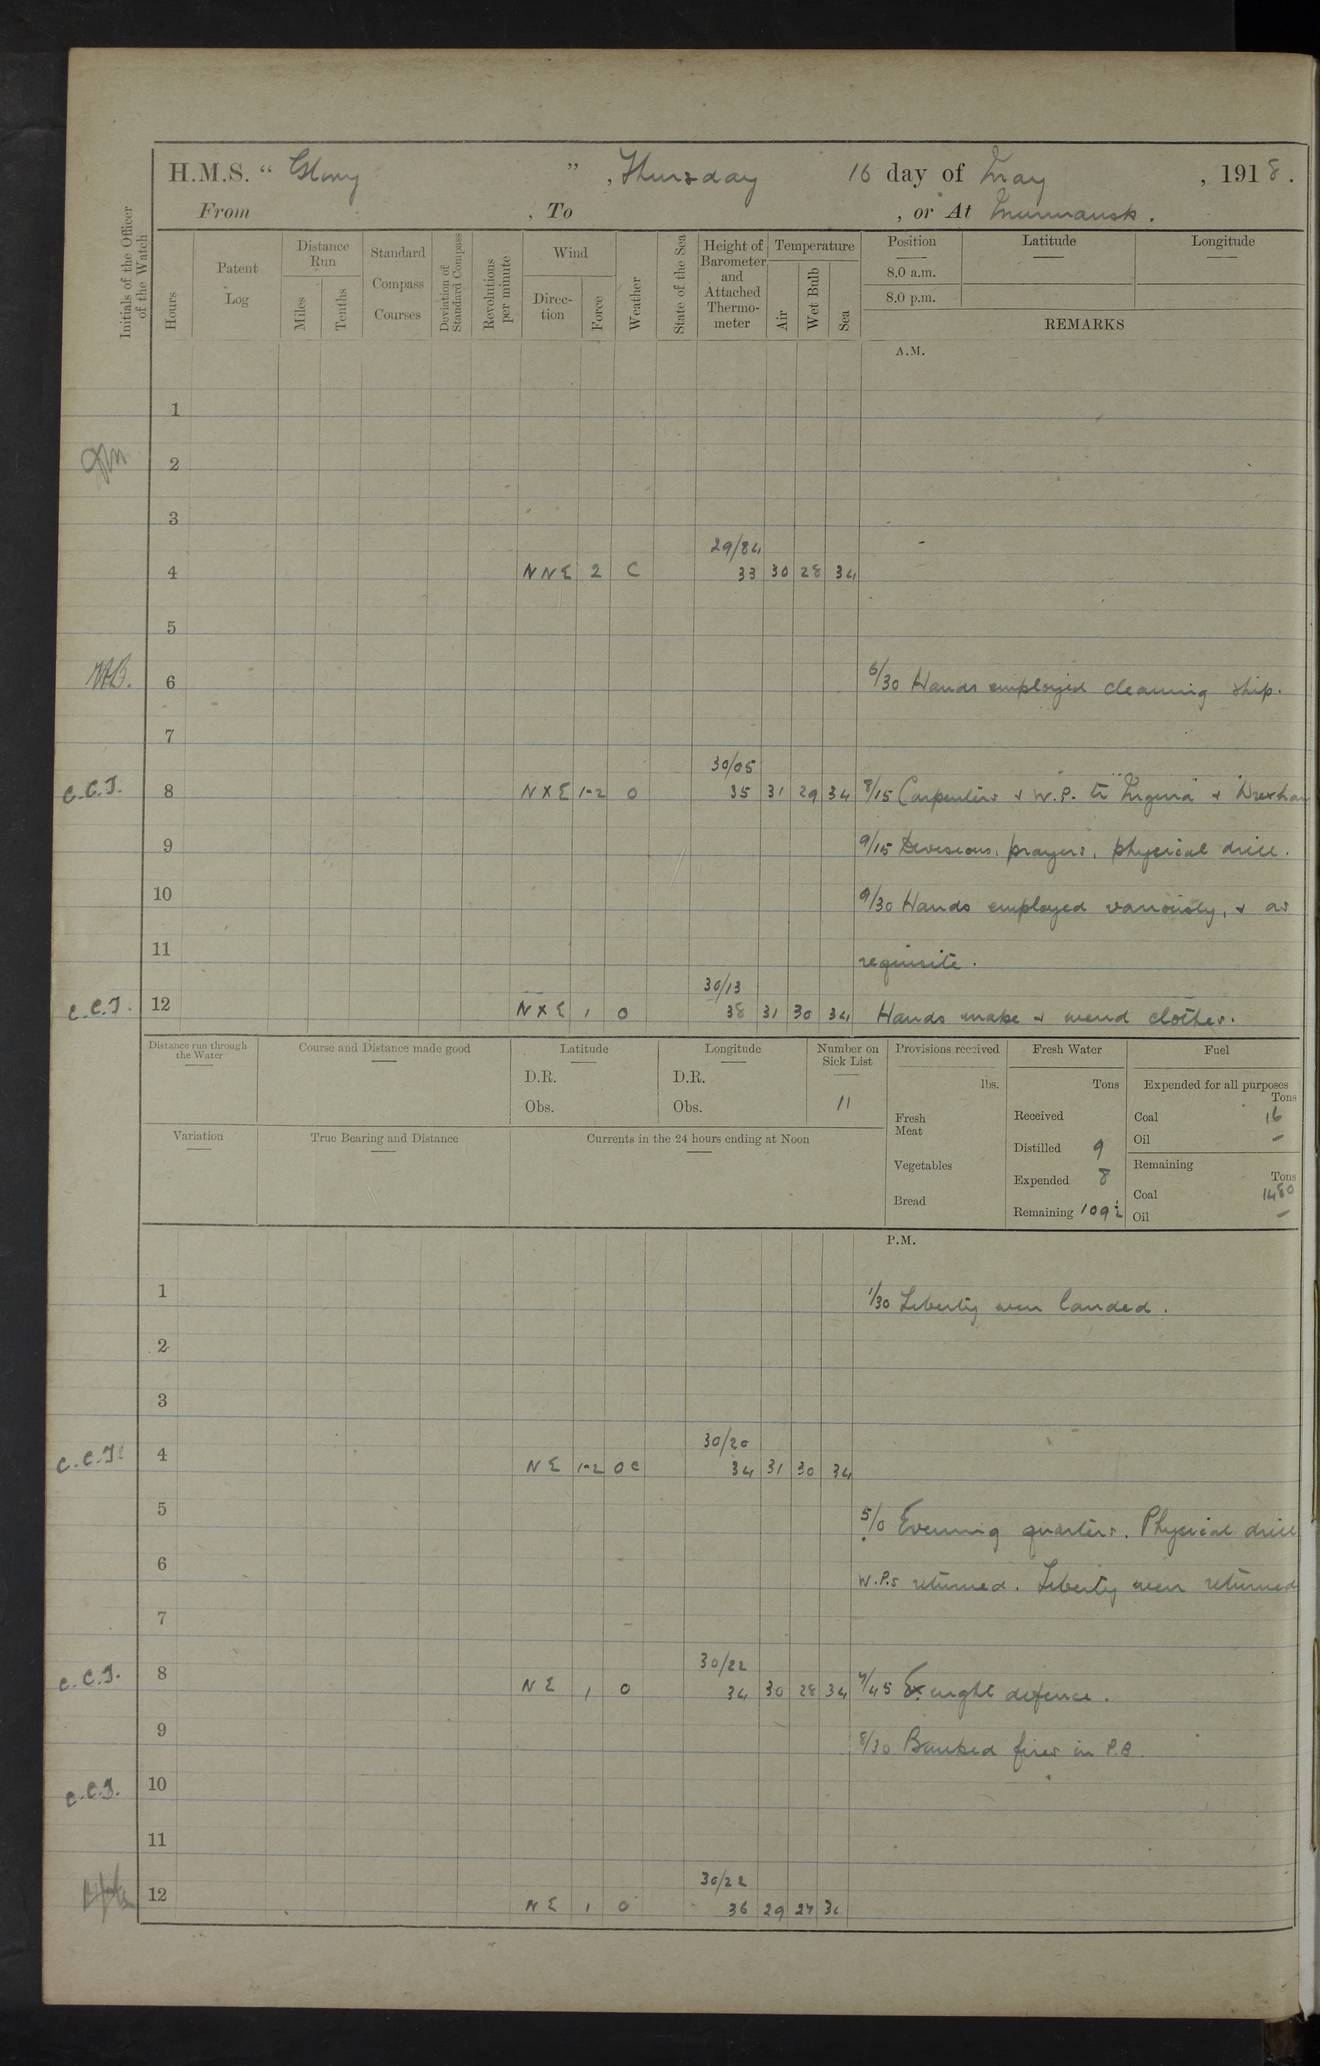 H.M.S. “ Glory ” , Thursday 16 day of May , 1918 .
From , To , or At Murmansk .
Initials of the Officer of the Watch
Hours
Patent Log
Distance Run
Miles
Tenths
Standard Compass Courses
Deviation of Standard Compass
Revolutions per minute
Wind
Direction
Force
Weather
State of the Sea
Height of Barometer and Attached Thermometer
Temperature
Air
Wet Bulb
Sea
Position
Latitude
Longitude
8.0 a.m.
8.0 p.m.
REMARKS
A.M.
1
2
3
29/84
4 NNE 2 C 33 30 28 34
5
6 6/30 Hands employed cleaning ship.
7
30/05
C.C.T. 8 NXE 1-2 O 35 31 29 34 8/15 Carpenters & W.P. to &
9 9/15 Divisions, prayers, physical drill.
10 9/30 Hands employed variously, & as
11 requisite.
30/13
C.C.T. 12 NXE 1 O 38 31 30 34 Hands make & mend clothes.
Distance run through the Water
Course and Distance made good
Latitude
D.R.
Obs.
Longitude
D.R.
Obs.
Number on Sick List
11
Provisions received
lbs.
Fresh Meat
Vegetables
Bread
Fresh Water
Tons
Received
Distilled 9
Expended 8
Remaining 109½
Fuel
Expended for all purposes
Tons
Coal 16
Oil –
Remaining
Tons
Coal 1480
Oil –
Variation
True Bearing and Distance
Currents in the 24 hours ending at Noon
P.M.
1 1/30 Liberty men landed.
2
3
30/20
C.C.T. 4 NE 1-2 OC 34 31 30 34
5 5/0 Evening quarters. Physical drill
6 W.P.s returned. Liberty men returned
7
30/22
C.C.T. 8 NE 1 O 34 30 28 34 7/45 Ex. night defence.
9 8/30 Banked fires in P.B.
C.C.T. 10
11
30/22
12 NE 1 O 36 29 27